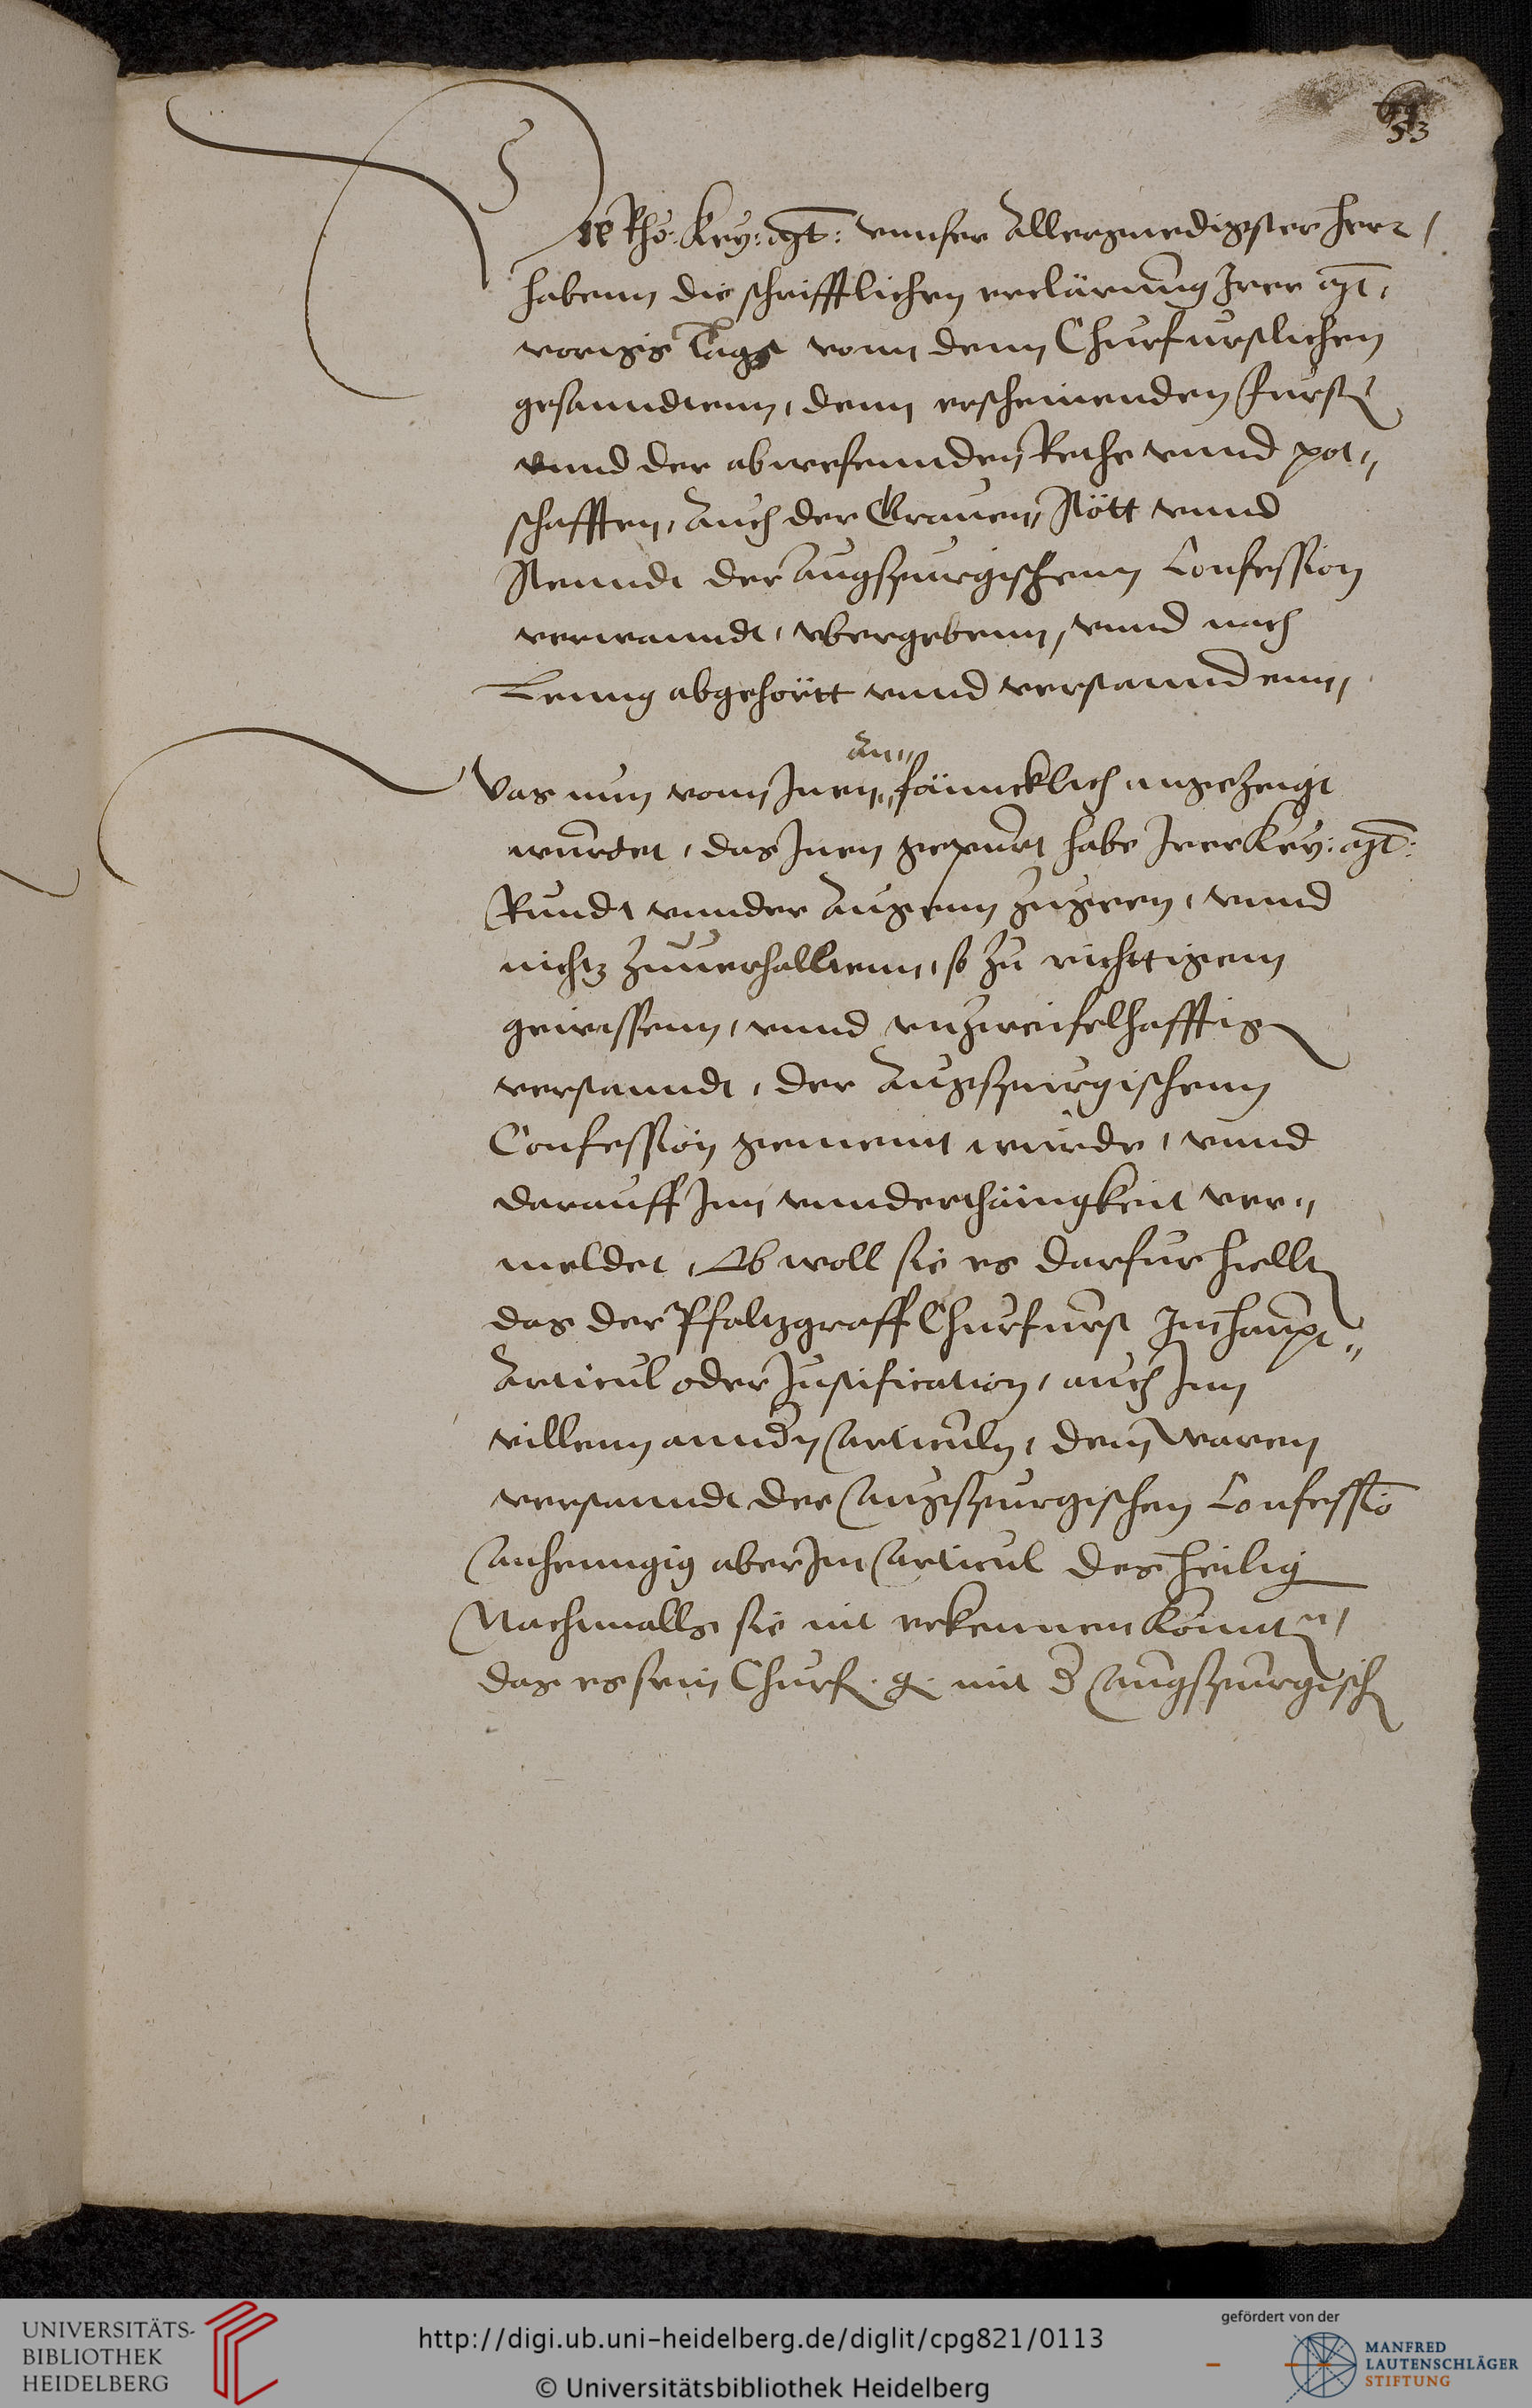 53
Die Rho: Key: Mt: vnnser Allergnedigster herr /
habenn die schrifftlichen erclärung Irer Mt,
vorigs tags vonn denn Churfurstlichen
gesanndtenn, denn erscheinenden Furstn
vnnd der abwesennden Rethe vnnd pot„
schafften, Auch der Grauen„ Stött vnnd
Stenndt der Augspurgischenn Confession
verwanndt, vbergebenn, vnnd nach
Lenng abgehörtt vnnd verstanndenn,
Was nun vonn Inen„ an„
fäncklich angezeigt
wurdet, das Inen gepurt habe Irer Key: Mt:
Rundt vnnder Augenn zugeen, vnnd
nichtz zuuerhalltenn, so zu richttigem
gewissenn, vnnd vnzweifelhafftign
verstanndt, der Augspurgischenn
Confession gemeint wurde, vnnd
darauff Inn vnnderthäinigkeit ver„
meldet, Ob woll sie es darfur hielltn
das der Pfaltzgraff Churfurst Im haupt„
Articul oder Justification, auch Inn
villenn anndern Articuln, dem waren
verstanndt der Augspurgischen Confession
Anhenngig aber Im Articul des heilign
Nachmalls sie nit erkennen konntn,
das es sein Churf. g. mit der Augspurgischn
UNIVERSITÄTS-
BIBLIOTHEK
HEIDELBERG
http://digi.ub.uni-heidelberg.de/diglit/cpg821/0113
© Universitätsbibliothek Heidelberg
gefördert von der
MANFRED
LAUTENSCHLÄGER
STIFTUNG